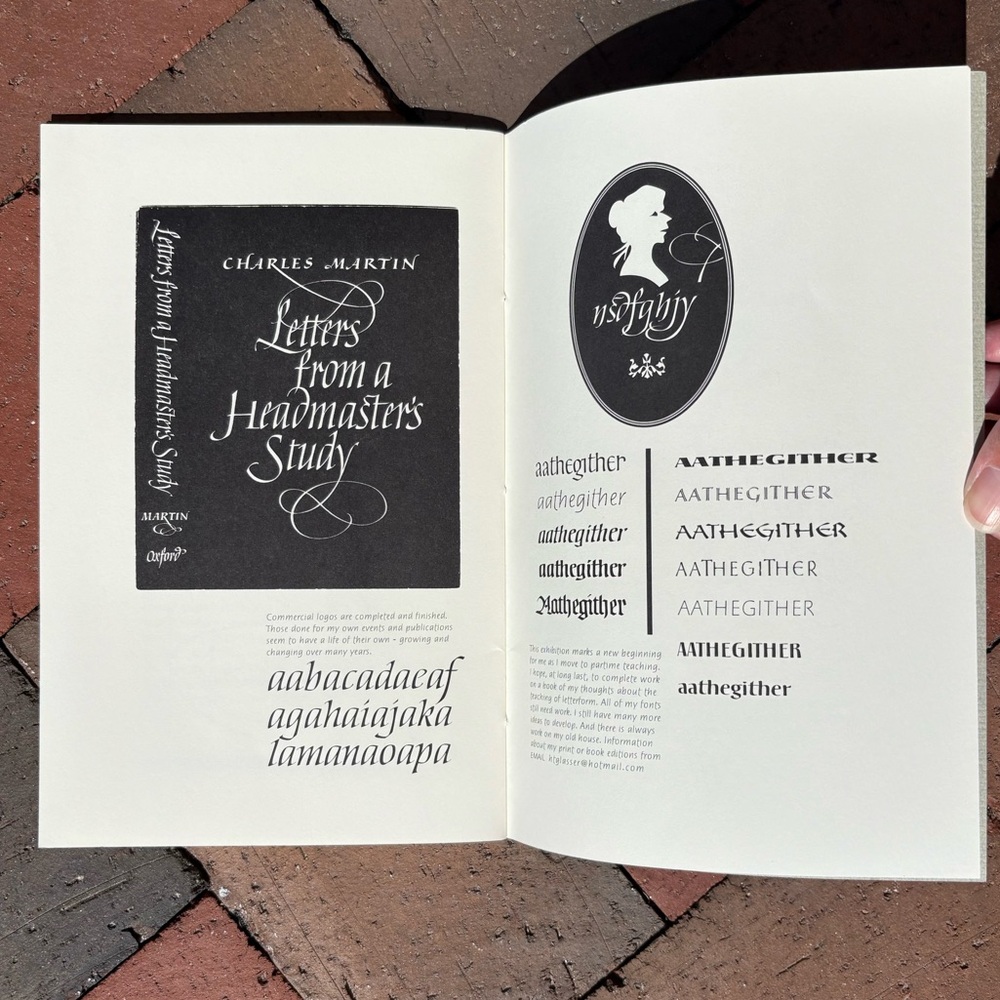 Letters from a Headmaster's Study
MARTIN
Oxford
CHARLES MARTIN
Letters
from a
Headmaster's
Study
Commercial logos are completed and finished.
Those done for my own events and publications
seem to have a life of their own - growing and
changing over many years.
aabacadaeaf
agahaiajaka
lamanaoapa
nsdfghjy
aathegither
aathegither
aathegither
aathegither
Aathegither
This exhibition marks a new beginning
for me as I move to partime teaching.
I hope, at long last, to complete work
on a book of my thoughts about the
teaching of letterform. All of my fonts
still need work. I still have many more
ideas to develop. And there is always
work on my old house. Information
about my print or book editions from
EMAIL htglasser@hotmail.com
AATHEGITHER
AATHEGITHER
AATHEGITHER
AATHEGITHER
AATHEGITHER
AATHEGITHER
aathegither